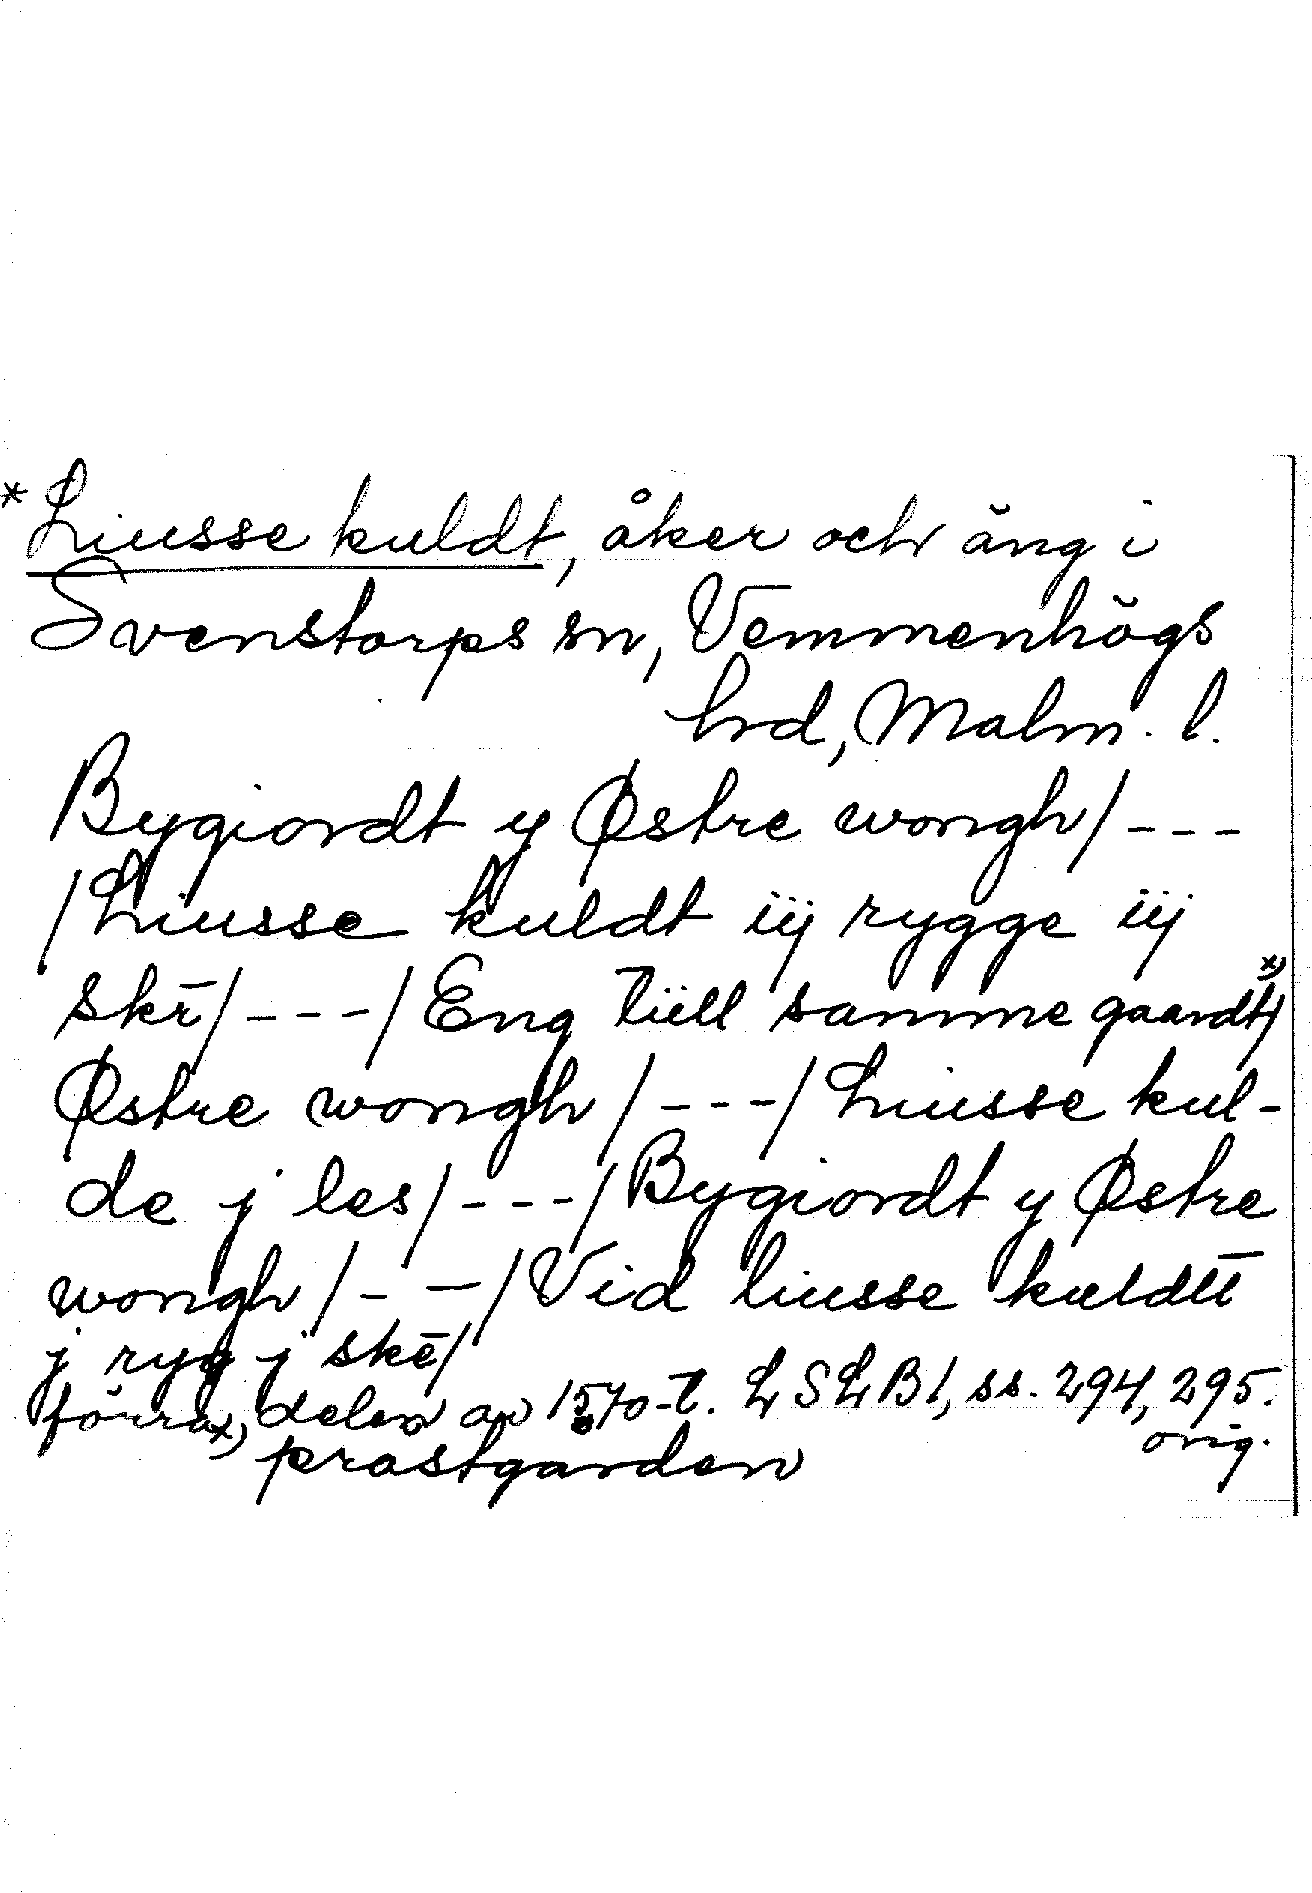 *Liusse kuldt, åker och äng i
Svenstorps sn, Vemmenhögs
hrd, Malm. l.
Bygiordt y Østre wongh/---
/Liusse kuldt iij rygge iij
skr̄/---/Eng tiill samme gaardt x)/
Østre wongh/---/Liusse kul-
de j les/---/Bygiordt y Østre
wongh/- -/Vid liusse kuldtt
j ryg j skē/
förra delen av 1570-t. LSLB1, ss. 294, 295.
orig.
x) prästgården